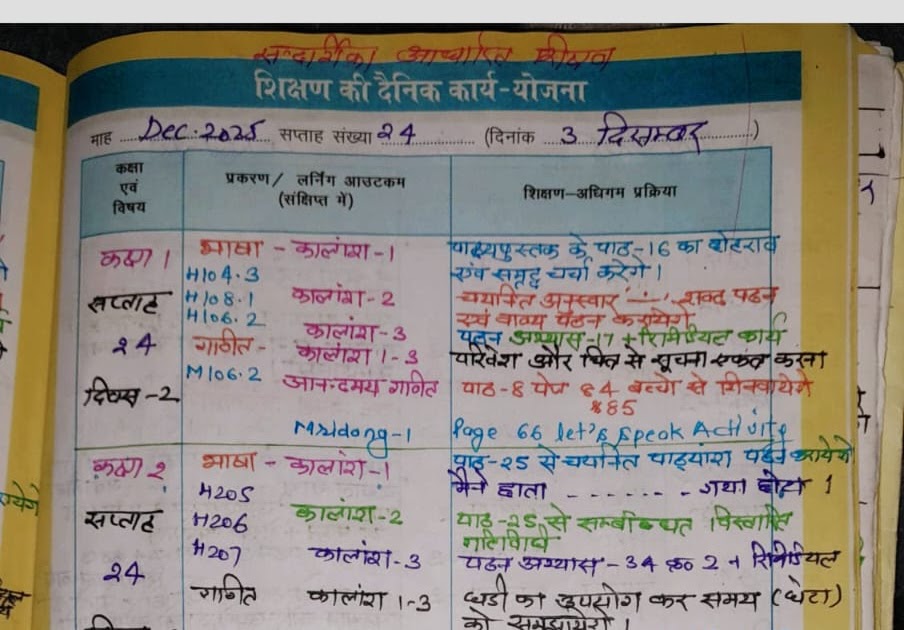 सन्दर्शिका आधारित शिक्षण
शिक्षण की दैनिक कार्य-योजना
माह Dec. 2025 सप्ताह संख्या 24 (दिनांक 3 दिसम्बर)
कक्षा एवं विषय
प्रकरण/ लर्निंग आउटकम (संक्षिप्त में)
शिक्षण-अधिगम प्रक्रिया
कक्षा 1
सप्ताह
24
दिवस -2
भाषा - कालांश -1
H104.3
H108.1 कालांश -2
H106.2
कालांश -3
गणित - कालांश 1-3
M106.2 आनन्दमय गणित
Mridang-1
पाठ्यपुस्तक के पाठ-16 का दोहराव
एवं समूह चर्चा करेंगे।
चयनित अनुस्वार शब्द पठन
एवं वाक्य पठन करायेंगे
पठन अभ्यास -17 + रिमिडियल कार्य
परिवेश और चित्र से सूचना एकत्र करना
पाठ-8 पेज 84 बच्चों से गिनवायेंगे
&85
Page 66 let's speak Activity
कक्षा 2
सप्ताह
24
भाषा - कालांश -1
H205
H206 कालांश -2
H207 कालांश -3
गणित कालांश 1-3
पाठ-25 से चयनित पाठ्यांश पठन करायेंगे
मैंने छाता - - - - - - - गया छोटा।
पाठ-25 से सम्बन्धित विस्तारित
गतिविधि
पठन अभ्यास -34 का 2 + रिमिडियल
घड़ी का उपयोग कर समय (घंटा)
को समझायेंगे।